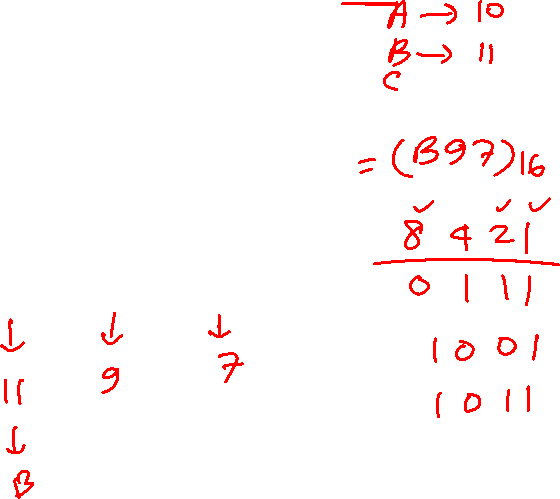 A → 10
B → 11
C
= (B97)16
8 4 2 1
0 1 1 1
↓ ↓ ↓
1 0 0 1
11 9 7
1 0 1 1
↓
B